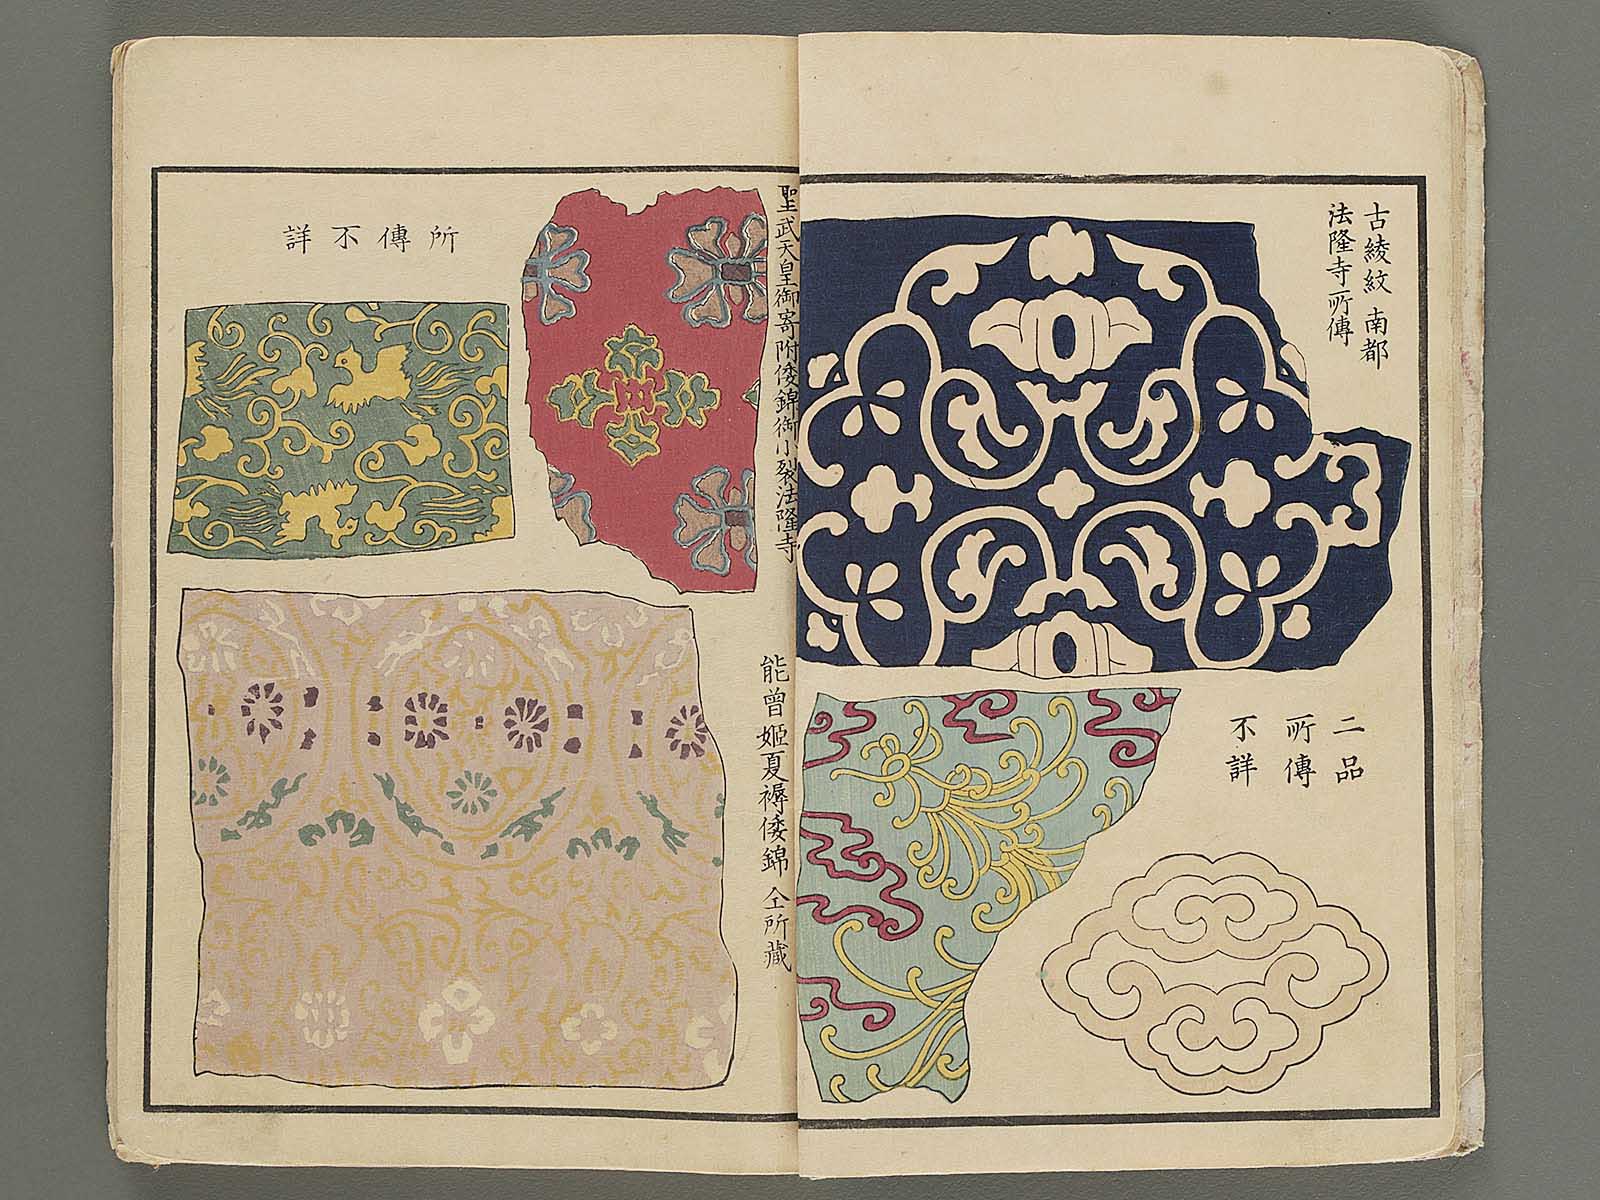 古綾紋 南都
法隆寺所傳
二品
所傳
不詳
聖武天皇御寄附倭錦御小裂法隆寺
能曾姬夏褥倭錦 仝所藏
所傳不詳